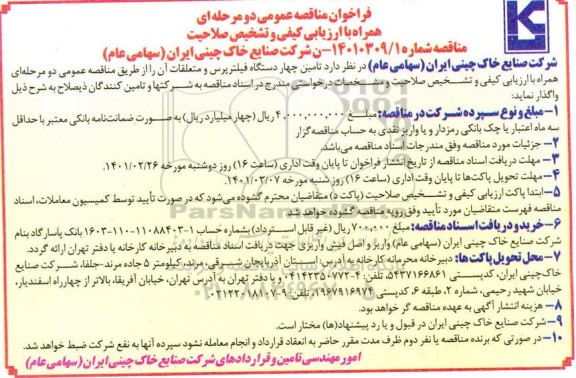 فراخوان مناقصه عمومی دو مرحله ای
همراه با ارزیابی کیفی و تشخیص صلاحیت
مناقصه شماره ۱۴۰۱۰۳۰۹/۱-ن شرکت صنایع خاک چینی ایران (سهامی عام)
شرکت صنایع خاک چینی ایران (سهامی عام) در نظر دارد تامین چهار دستگاه فیلتر پرس و متعلقات آن را از طریق مناقصه عمومی دو مرحله‌ای
همراه با ارزیابی کیفی و تشخیص صلاحیت و مشخصات درخواستی مندرج در اسناد مناقصه به شرکتها و تامین کنندگان ذیصلاح به شرح ذیل
واگذار نماید:
۱- مبلغ و نوع سپرده شرکت در مناقصه: مبلغ ۴,۰۰۰,۰۰۰,۰۰۰ ریال (چهار میلیارد ریال) به صورت ضمانت‌نامه بانکی معتبر با حداقل
سه ماه اعتبار یا چک بانکی رمزدار و یا واریز نقدی به حساب مناقصه‌گزار
۲- جزئیات مورد مناقصه وفق مندرجات اسناد مناقصه می‌باشد.
۳- مهلت دریافت اسناد مناقصه از تاریخ انتشار فراخوان تا پایان وقت اداری (ساعت ۱۶) روز دوشنبه مورخه ۱۴۰۱/۰۲/۲۶
۴- مهلت تحویل پاکت‌ها تا پایان وقت اداری (ساعت ۱۶) روز شنبه مورخه ۱۴۰۱/۰۳/۰۷
۵- ابتدا پاکت ارزیابی کیفی و تشخیص صلاحیت (پاکت د) متقاضیان محترم گشوده می‌شود که در صورت تأیید توسط کمیسیون معاملات، اسناد
مناقصه فهرست متقاضیان مورد تأیید وفق رویه مناقصه گشوده خواهد شد.
۶- خرید و دریافت اسناد مناقصه: مبلغ ۷۰۰,۰۰۰ ریال (غیر قابل استرداد) بشماره حساب ۱-۱۱۰۸۸۴۰۳-۱۱۰-۱۶۰۳ بانک پاسارگاد بنام
شرکت صنایع خاک چینی ایران (سهامی عام) واریز و اصل فیش واریزی جهت دریافت اسناد مناقصه به دبیرخانه کارخانه یا دفتر تهران ارائه گردد.
۷- محل تحویل پاکت‌ها: دبیرخانه محرمانه کارخانه به آدرس: استان آذربایجان شرقی، مرند، کیلومتر ۵ جاده مرند-جلفا، شرکت صنایع
خاک‌چینی ایران، کدپستی ۵۴۳۷۱۶۶۸۶۱، تلفن: ۲-۰۴۱۴۲۳۵۰۷۷۲ و یا دفتر تهران به آدرس تهران، خیابان آفریقا، بالاتر از چهارراه اسفندیار،
خیابان شهید رحیمی، شماره ۲، طبقه ۶، کدپستی ۱۹۶۷۹۱۶۹۷۴، تلفن: ۹-۰۲۱۲۲۰۱۸۱۰۷
۸- هزینه انتشار آگهی به عهده مناقصه گر خواهد بود.
۹- شرکت صنایع خاک چینی ایران در قبول و یا رد پیشنهاد(ها) مختار است.
۱۰- در صورتی که برنده مناقصه یا نفر دوم ظرف مدت مقرر حاضر به انعقاد قرارداد و انجام معامله نشود سپرده آنها به نفع شرکت ضبط خواهد شد.
امور مهندسی تامین و قراردادهای شرکت صنایع خاک چینی ایران (سهامی عام)